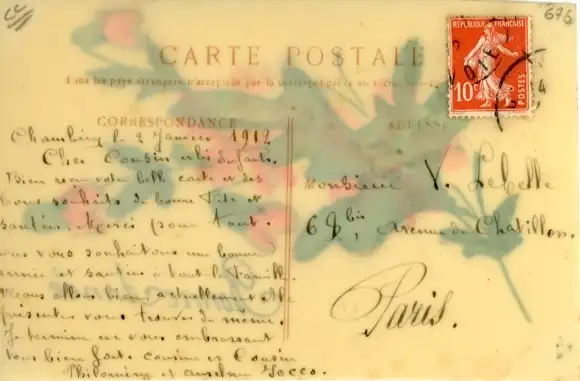 676
CARTE POSTALE
Tous les pays étrangers n'acceptent pas la correspondance au recto
CORRESPONDANCE
ADRESSE
REPUBLIQUE FRANÇAISE
10c
POSTES
Chambéry le 2 Janvier 1912
Cher Cousin et les Enfants
Bien reçu votre belle carte et les
bons souhaits de bonne Fête et
santée. Merci pour tout.
nous vous souhaitons une bonne
année et santée à tout la Famille.
Nous allons bien actuellement
présente vous trouver de meme.
Je termine en vous embrassant
tous bien fort. cousine et Cousin
Philomène et Anselme Tocco.
Monsieur V. Lebelle
68 bis, Avenue de Chatillon
Paris.